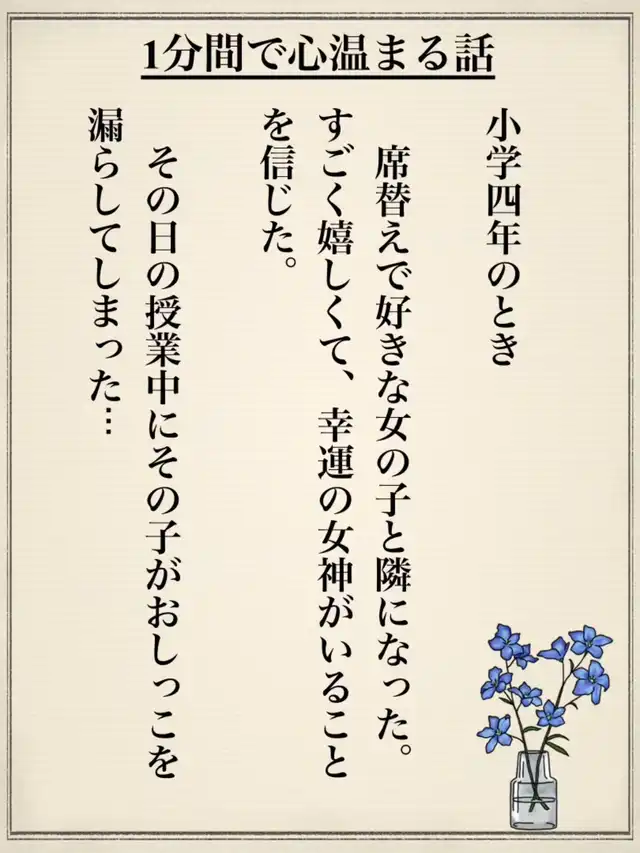 1分間で心温まる話
小学四年のとき
席替えで好きな女の子と隣になった。
すごく嬉しくて、幸運の女神がいること
を信じた。
その日の授業中にその子がおしっこを
漏らしてしまった…